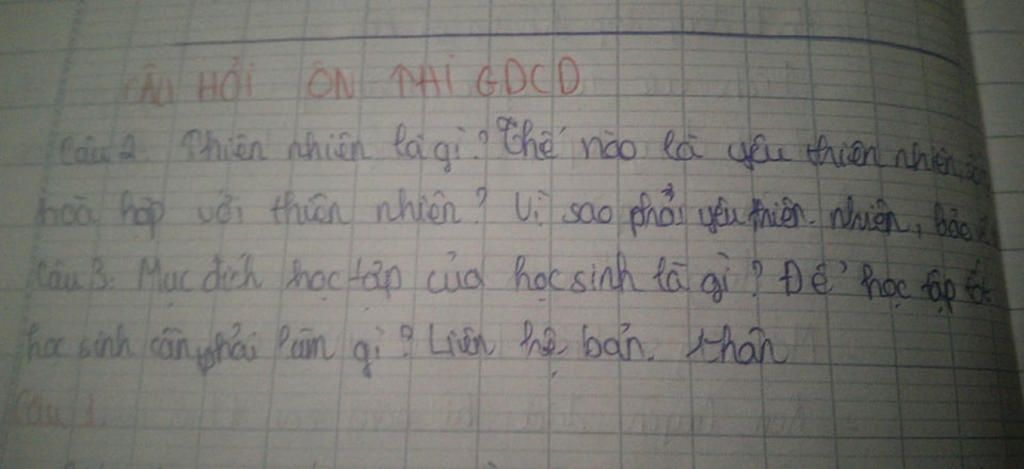 CÂU HỎI ÔN THI GDCD
Câu 2. Thiên nhiên là gì? Thế nào là yêu thiên nhiên,
hoà hợp với thiên nhiên? Vì sao phải yêu thiên nhiên, bảo
Câu 3. Mục đích học tập của học sinh là gì? Để học tập tốt
học sinh cần phải làm gì? Liên hệ bản thân
Câu 1.